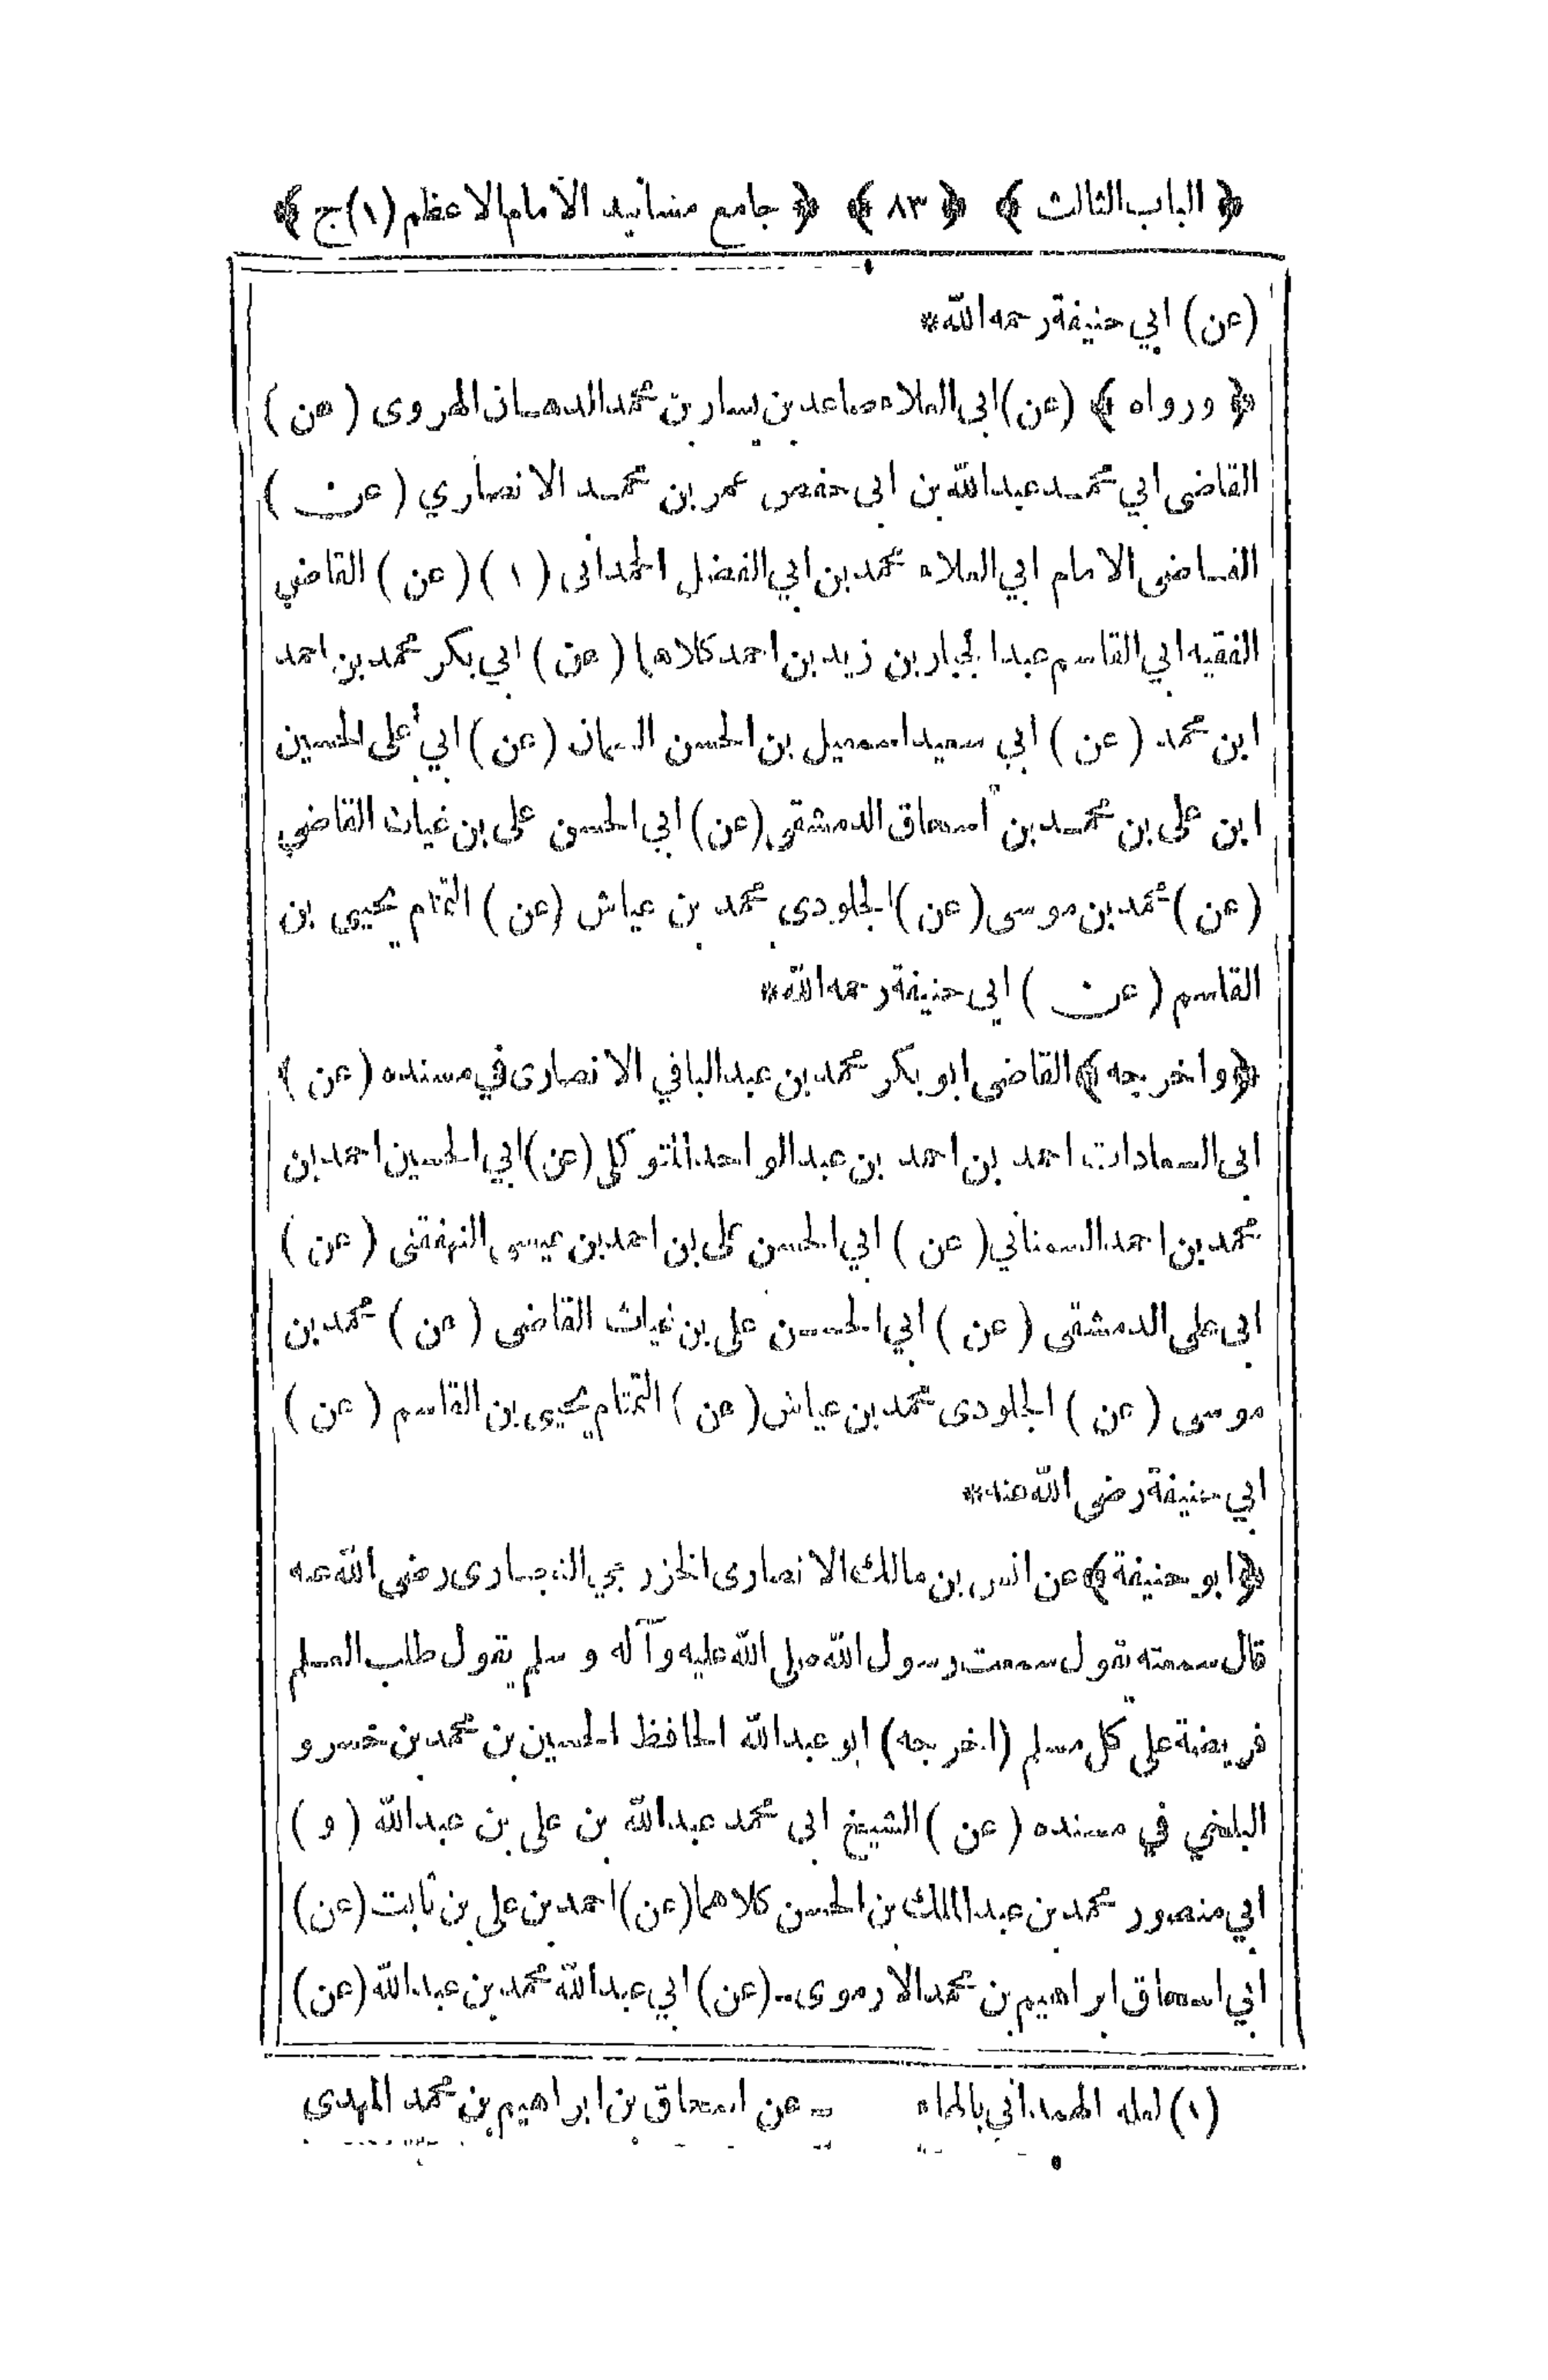 ﴿ الباب الثالث ﴾ ﴿ ٨٣ ﴾ ﴿ جامع مسانيد الامام الاعظم (١) ج ﴾
(عن) ابي حنيفة رحمه الله*
﴿ ورواه ﴾ (عن) ابى العلاء صاعد بن يسار بن محمد الدهان الهروى (عن)
القاضى ابي محمد عبد الله بن ابى حفص عمر بن محمد الانصاري (عن)
القاضى الامام ابي العلاء محمد بن ابي الفضل الحمدانى (١) (عن) القاضي
الفقيه ابي القاسم عبد الجبار بن زيد بن احمد كلاهما (عن) ابي بكر محمد بن احمد
ابن محمد (عن) ابي سعيد اسمعيل بن الحسن السمان (عن) ابي على الحسين
ابن على بن محمد بن اسحاق الدمشقى (عن) ابي الحسن على بن غياث القاضي
(عن) محمد بن موسى (عن) الجلودى محمد بن عياش (عن) التمتام يحيى بن
القاسم (عن) ابى حنيفة رحمه الله*
﴿واخرجه﴾ القاضى ابو بكر محمد بن عبد الباقي الانصارى في مسنده (عن)
ابى السعادات احمد بن احمد بن عبد الواحد المتوكلى (عن) ابي الحسين احمد بن
محمد بن احمد السمناني (عن) ابي الحسن على بن احمد بن عيسى النهفقنى (عن)
ابى على الدمشقى (عن) ابي الحسن على بن غياث القاضى (عن) محمد بن
موسى (عن) الجلودى محمد بن عياش (عن) التمتام يحيى بن القاسم (عن)
ابي حنيفة رضى الله عنه*
﴿ابو حنيفة﴾ عن انس بن مالك الانصارى الخزرجي النجارى رضى الله عنه
قال سمعته يقول سمعت رسول الله صلى الله عليه وآله وسلم يقول طلب العلم
فريضة على كل مسلم (اخرجه) ابو عبد الله الحافظ الحسين بن محمد بن خسرو
البلخي في مسنده (عن) الشيخ ابى محمد عبد الله بن على بن عبد الله (و)
ابي منصور محمد بن عبد الملك بن الحسن كلاهما (عن) احمد بن على بن ثابت (عن)
ابي اسحاق ابراهيم بن محمد الارموى.. (عن) ابي عبد الله محمد بن عبد الله (عن)
(١) لعله الهمداني بالهاء .. عن اسحاق بن ابراهيم بن محمد المهدى